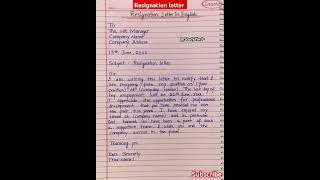 Resignation letter
Resignation Letter In English
To
The HR Manager
Company Name
Company Address
Subject - Resignation letter
Sir,
I am writing this letter to notify that I
am resigning from my position as (your
position) at (Company name). The last day of
my employment will be 26th June,
I appreciate the opportunities for professional
development that you have provided me over
the past two years. I have enjoyed my
tenure at (Company name) and in particular
feel honored to have been a part of such
a supportive team. I wish you and the
company success in the future.
Thanking you
Yours Sincerely
(Your name)
Subscribe